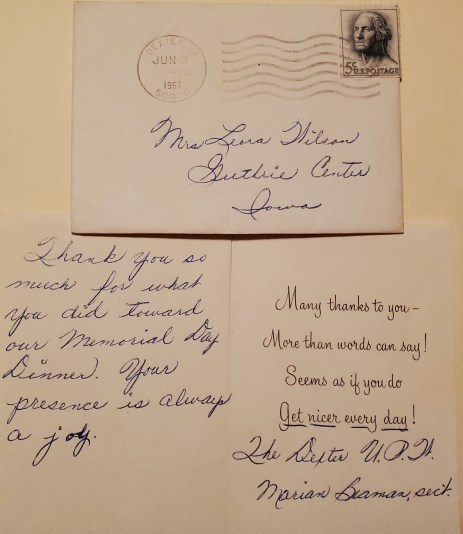 DEXTER, IA
JUN
1967
50070
5c U.S. POSTAGE
Mrs Leora Wilson
Guthrie Center
Iowa
Thank you so
much for what
you did toward
our Memorial Day
Dinner. Your
presence is always
a joy.
Many thanks to you–
More than words can say!
Seems as if you do
Get nicer every day!
The Dexter U.P.W.
Marian Beaman, sect.